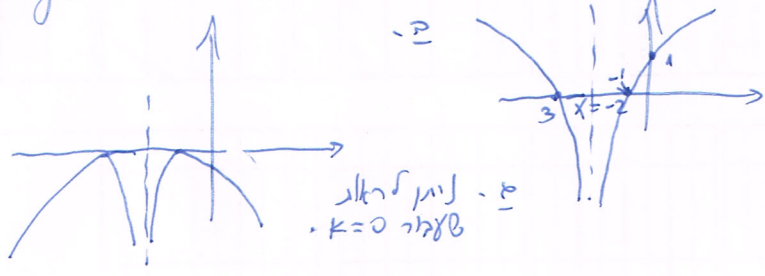 ב.
1
-1
3
x=-2
ג. ניתן לראות
שעבור k=0.